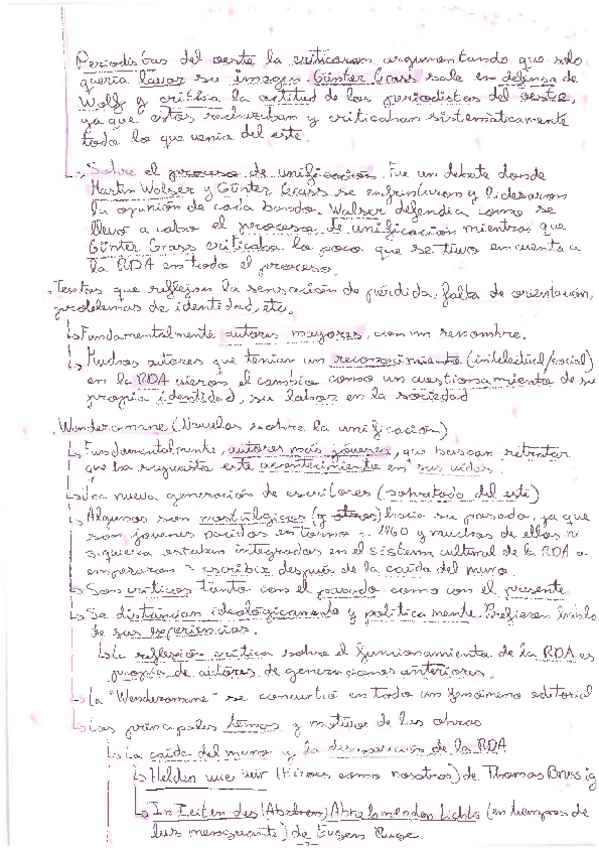 Periodistas del oeste la criticaron argumentando que solo
quería lavar su imagen. Günter Grass sale en defensa de
Wolf y critica la actitud de los periodistas del oeste,
ya que estos rechazaban y criticaban sistemáticamente
todo lo que venía del este.
Sobre el proceso de unificación. Fue un debate donde
Martin Walser y Günter Grass se enfrentaron y lideraron
la opinión de cada bando. Walser defendía como se
llevó a cabo el proceso de unificación mientras que
Günter Grass criticaba lo poco que se tuvo en cuenta a
la RDA en todo el proceso.
Textos que reflejan la sensación de pérdida, falta de orientación,
problemas de identidad, etc.
Fundamentalmente autores mayores, con un renombre.
Muchos autores que tenían un reconocimiento (intelectual/social)
en la RDA vieron el cambio como un cuestionamiento de su
propia identidad, su labor en la sociedad
Wenderomane (Novelas sobre la unificación)
Fundamentalmente, autores más jóvenes, que buscan retratar
que ha supuesto este acontecimiento en sus vidas.
Una nueva generación de escritores (sobretodo del este)
Algunos son nostálgicos (y otros) hacia su pasado, ya que
son jóvenes nacidos en torno a 1960 y muchos de ellos ni
siquiera estaban integrados en el sistema cultural de la RDA o
empezaron a escribir después de la caída del muro.
Son críticos tanto con el pasado como con el presente
Se distancian ideológicamente y políticamente. Prefieren
de sus experiencias.
La reflexión crítica sobre el funcionamiento de la RDA es
propia de autores de generaciones anteriores.
La "Wenderomane" se convirtió en todo un fenómeno editorial
Los principales temas y motivos de las obras
La caída del muro y la desaparición de la RDA
Helden wie wir (Héroes como nosotros) de Thomas Brussig
In Zeiten des (Abneh) Abnehmenden Lichts (en tiempos de
luz menguante) de Eugen Ruge.